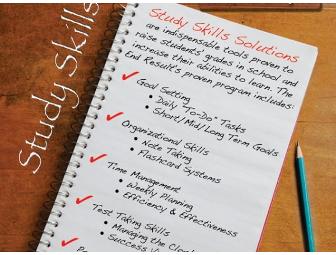 Study Skills
Study Skills Solutions
are indispensable tools proven to
raise students' grades in school and
increase their abilities to learn. The
End Result's proven program includes:
Goal Setting
• Daily "To-Do" Tasks
• Short/Mid/Long Term Goals
Organizational Skills
• Note Taking
• Flashcard Systems
Time Management
• Weekly Planning
• Efficiency & Effectiveness
Test Taking Skills
• Managing the
• Success